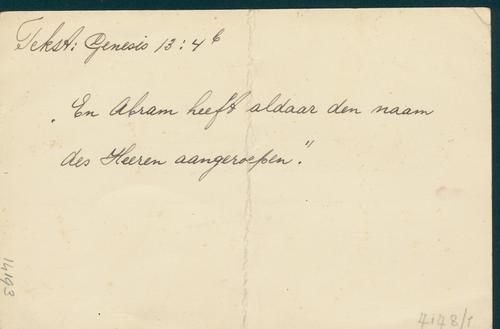 Tekst: Genesis 13:4b
„En Abram heeft aldaar den naam
des Heeren aangeroepen."
14193
4148/1